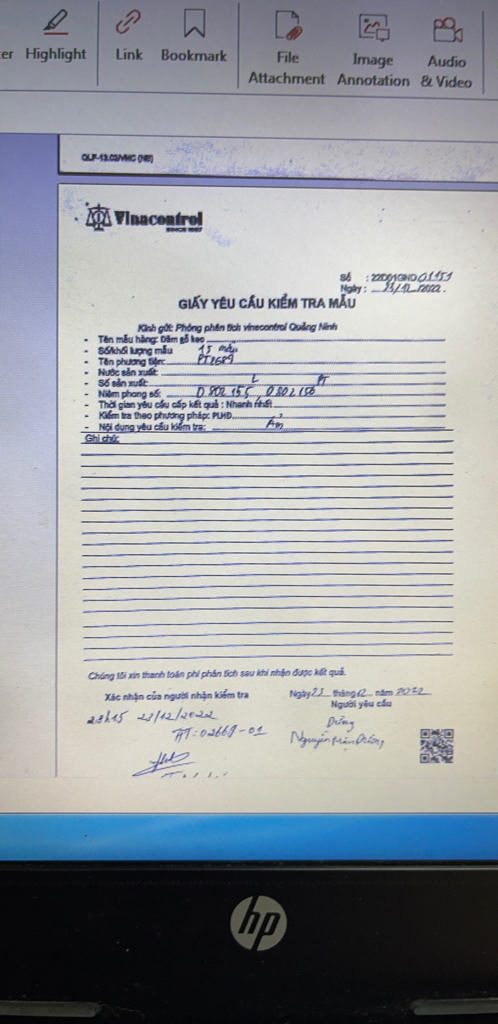 er Highlight Link Bookmark File Attachment Image Annotation Audio & Video
QLF-13.03/VMC (NB)
Vinacontrol
SINCE 1957
Số : 22D01GND01151
Ngày : 23/12/2022.
GIẤY YÊU CẦU KIỂM TRA MẪU
Kính gửi: Phòng phân tích vinacontrol Quảng Ninh
- Tên mẫu hàng: Dăm gỗ keo
- Số/khối lượng mẫu 15 mẫu
- Tên phương tiện: PT2689
- Nước sản xuất:
- Số sản xuất: L PT
- Niêm phong số: 0.802.155 0.802.156
- Thời gian yêu cầu cấp kết quả : Nhanh nhất
- Kiểm tra theo phương pháp: PLHĐ
- Nội dung yêu cầu kiểm tra: Ẩm
Ghi chú:
Chúng tôi xin thanh toán phí phân tích sau khi nhận được kết quả.
Xác nhận của người nhận kiểm tra
23h15 23/12/2022
AT: 02669-01
Ngày 23 tháng 12 năm 2022
Người yêu cầu
Dũng
Nguyễn Dũng
hp